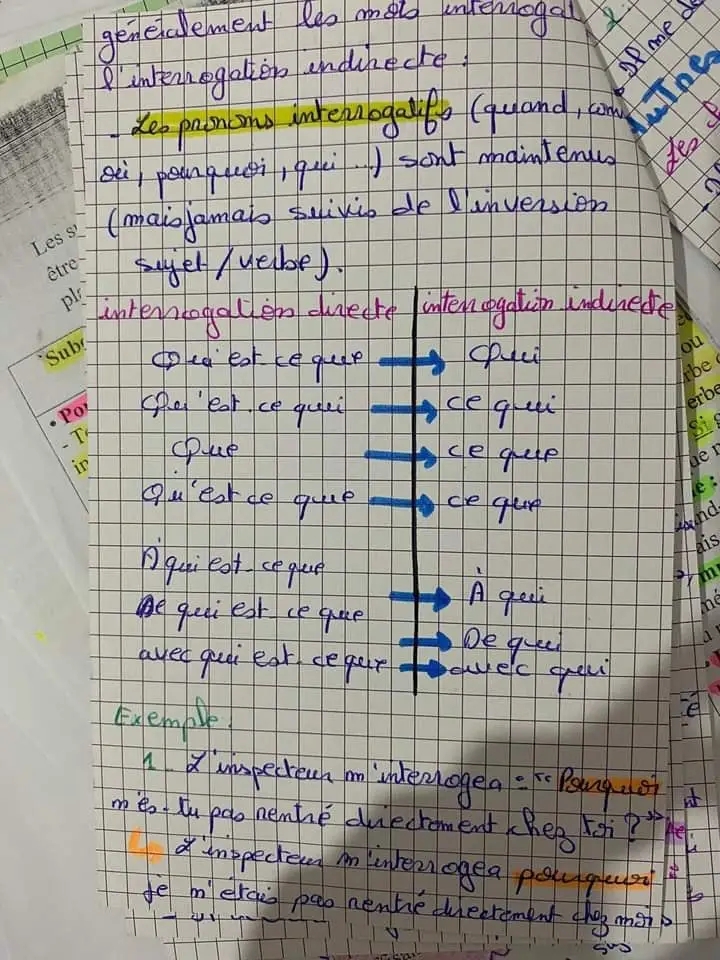 généralement les mots interrogat
l'interrogation indirecte :
- Les pronoms interrogatifs (quand, com
où, pourquoi, qui ...) sont maintenus
(mais jamais suivis de l'inversion
sujet / verbe).
interrogation directe interrogation indirecte
Qui est ce que → Qui
Qu'est.ce qui → ce qui
Que → ce que
Qu'est ce que → ce que
À qui est-ce que → À qui
De qui est ce que → De qui
avec qui est-ce que → avec qui
Exemple :
1- L'inspecteur m'interrogea : "Pourquoi
n'es-tu pas rentré directement chez toi ?"
↳ L'inspecteur m'interrogea pourquoi
je n'étais pas rentré directement chez moi
Les s
être
pl
Subo
• Po
- T
in
ou
erbe
Si